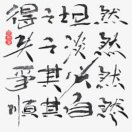 得之坦然
失之淡然
爭其必然
順其自然